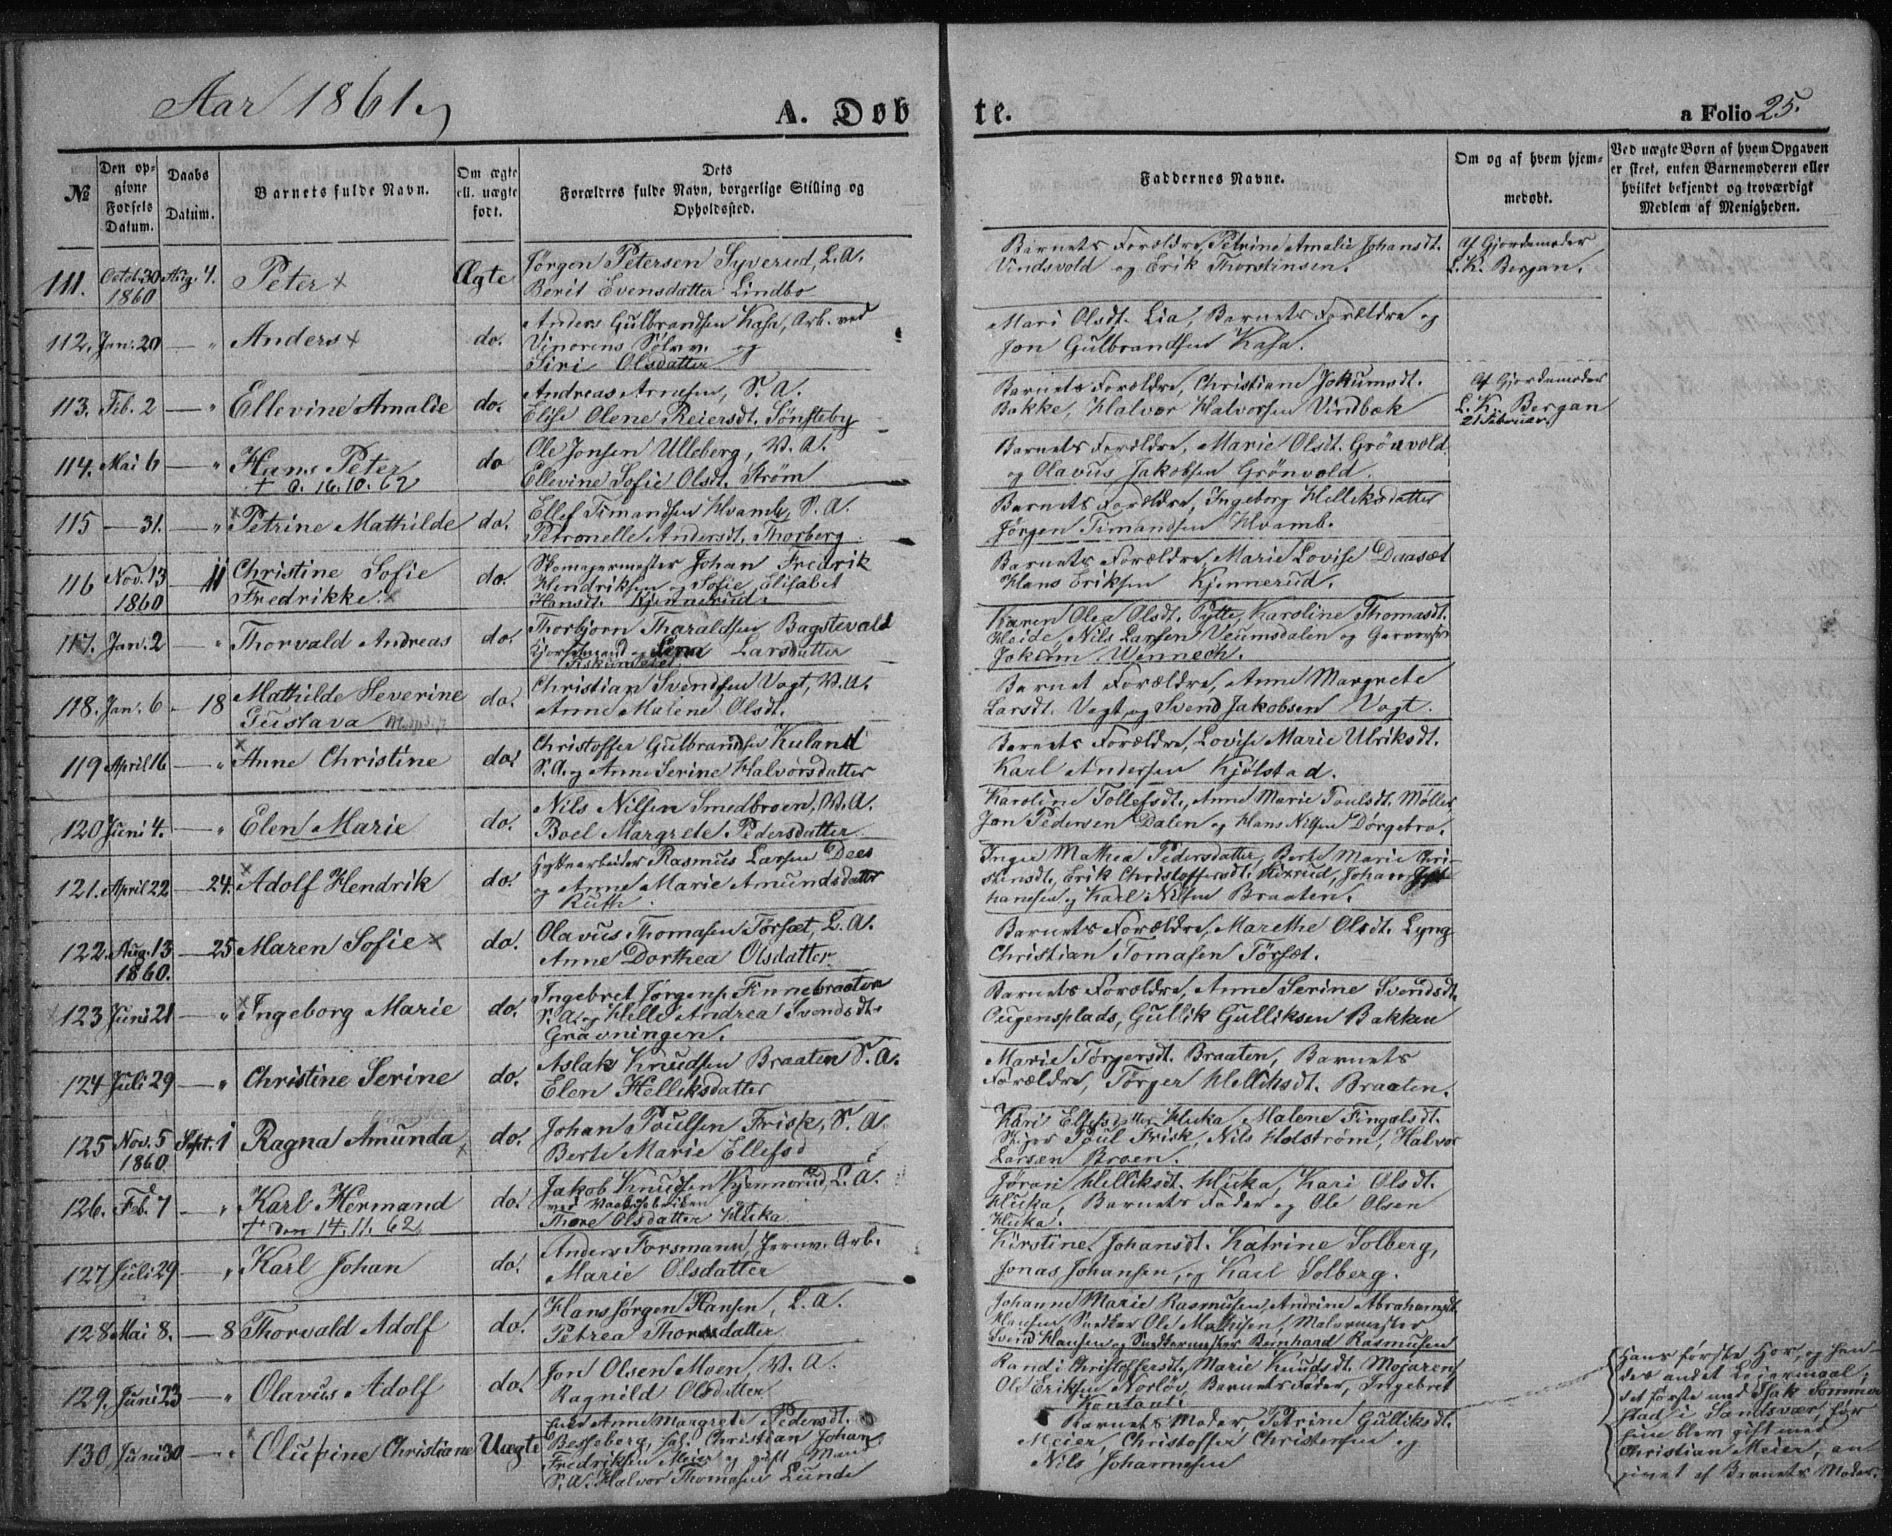 Aar 1861.
A. Døbte.
a Folio 25.
№
Den opgivne Fødsels Datum.
Daabs Datum.
Barnets fulde Navn.
Om ægte ell. uægte født.
Dets Forældres fulde Navn, borgerlige Stilling og Opholdssted.
Faddernes Navne.
Om og af hvem hjemmedøbt.
Ved uægte Børn af hvem Opgaven er skeet, enten Barnemoderen eller hvilket bekjendt og troværdigt Medlem af Menigheden.
111. Octob. 30 1860 Aug. 4. Peter Ægte
Jørgen Petersen Syverud, L. A.
Berit Evensdatter Lindbo
Barnets Forældre, Petrine Amalie Johansdt.
Vindsvold og Erik Thorstinsen.
Af Gjordemoder
L. K. Bergan.
112. Jan. 20 — " Anders do.
Anders Gulbrandsen Kasa, Arb. ved
Vinorens Sølvv. og
Siri Olsdatter
Mari Olsdt. Lia, Barnets Forældre og
Jon Gulbrandsen Kasa.
113. Feb. 2 — " Ellevine Amalie do.
Andreas Arnesen, S. A.
Elise Olene Reiersdt. Sønsteby
Barnets Forældre, Christiane Jokumsdt.
Bakke, Halvor Halvorsen Vindbæk
Af Gjordemoder
L. K. Bergan
21 Februar.
114. Mai 6 — " Hans Peter do
+ d. 16.10.62
Ole Jonsen Ulleberg, V. A.
Ellevine Sofie Olsdt. Strøm
Barnets Forældre, Marie Olsdt. Grönvold
og Olavus Jakobsen Grönvold.
115 — 31. " Petrine Mathilde do.
Ellef Timandsen Hvamb, S. A.
Petronelle Andersdt. Thorberg
Barnets Forældre, Ingeborg Helliksdatter
Jørgen Timandsen Hvamb.
116 Nov. 13 1860 — 11 Christine Sofie
Fredrikke do.
Skomagermester Johan Fredrik
Hendriksen og Sofie Elisabet
Hansdt. Kjennerud.
Barnets Forældre, Marie Lovise Daasæt
Hans Eriksen Kjennerud.
117. Jan. 2 " Thorvald Andreas do.
Thorbjørn Tharaldsen Bagstevald
Lena Larsdatter
Karen Olea Olsdt. Pytte, Karoline Thomasdt.
Heide, Nils Larsen Veumsdalen og
Jokum Wennech.
118. Jan. 6 - 18 Mathilde Severine
Gustava do.
Christian Svendsen Vogt, V. A.
Anne Malene Olsdt.
Barnet Forældre, Anne Margrete
Larsdt. Vogt og Svend Jakobsen Vogt.
119 April 16 — " Anne Christine do.
Christoffer Gulbrandsen Kuland
S. A. og Anne Serine Halvorsdatter
Barnets Forældre, Lovise Marie Ulriksdt.
Karl Andersen Kjølstad.
120 Juni 4. — " Elen Marie do.
Nils Nilsen Smedbroen, V. A.
Boel Margrete Pedersdatter
Karoline Tollefsdt., Anne Marie Poulsdt. Møller
Jon Pedersen Dalen og Hans Nilsen Dørgebro.
121. April 22 — 24. Adolf Hendrik do.
Hyttearbeider Rasmus Larsen Dees
og Anne Marie Amundsdatter
Ruth.
Inger Mathea Pedersdatter, Berte Marie Chri-
stensdt., Erik Christoffersdt. Stixrud, Johan
hansen og Karl Nilsen Braaten.
122. Aug. 13 1860. — 25 Maren Sofie do.
Olavus Thomasen Tørsæt, L. A.
Anne Dorthea Olsdatter
Barnets Forældre, Marethe Olsdt. Lyng
Christian Tomasen Törsæt.
123 Juni 21 — " Ingeborg Marie do.
Ingebret Jørgens. Finnebraaten
S. A. og Helle Andrea Svendsdt.
Grävningen.
Barnets Forældre, Anne Serine Svendsdt.
Eugensplads, Gullik Gulliksen Bakken
124 Juli 29 — " Christine Serine do.
Aslak Knudsen Braaten S. A.
Elen Helliksdatter
Marie Törgersdt. Braaten, Barnets
Forældre, Törger Helliksdt. Braaten.
125 Nov. 5 1860 Sept. 1 Ragna Amunda do.
Johan Poulsen Frisk, S. A.
Berte Marie Ellefsd
Kari Elfefsdtter Huka, Malene Fingalsdt.
Poul Frisk, Nils Holström, Halvor
Larsen Broen.
126. Feb. 7 — " Karl Hermand do.
+ den 14.11.62
Jakob Knudsen Kjennerud, L. A.
ved Vaabenfabriken
Thore Olsdatter Huka
Jøran Helliksdt. Huka, Kari Olsdt.
Huka, Barnets Fader og Ole Olsen
Huka.
127 Juli 29 — " Karl Johan do.
Anders Forsmann, Jernv. Arb.
Marie Olsdatter
Kirstine Johansdt. Katrine Solberg,
Jonas Johansen, og Karl Solberg.
128 Mai 8. — 8 Thorvald Adolf do.
Hans Jørgen Hansen, L. A.
Petrea Thorsdatter
Johanne Marie Rasmusen, Andrine Abrahamsdt.
Hansen, Snedker Ole Mathisen, Malermester
Svend Hansen og Snedkermester Bernhard Rasmusen
129. Juni 23 — " Olavus Adolf do.
Jon Olsen Moen, V. A.
Ragnild Olsdatter
Randi Christoffersdt. Marie Knudsdt. Mojaren,
Ole Eriksen Norløv, Barnets Fader, Ingebret
130 Juni 30 — " Olufine Christiane Uægte
Enke Anne Margrete Pedersdt.
Besseberg, sal. Christian Johan
Fredriksen Meier og gift Mand
S. A. Halvor Thomasen Lunde
Barnets Moder, Petrine Gulliksdt.
Meier, Christoffer Christensen og
Nils Johannesen
Hans første Hor, og hen-
des andet Leiermaal;
det første med Isak Sommer
stad i Sandsvær, før
hun blev gift med
Christian Meier, an
givet af Barnets Moder.